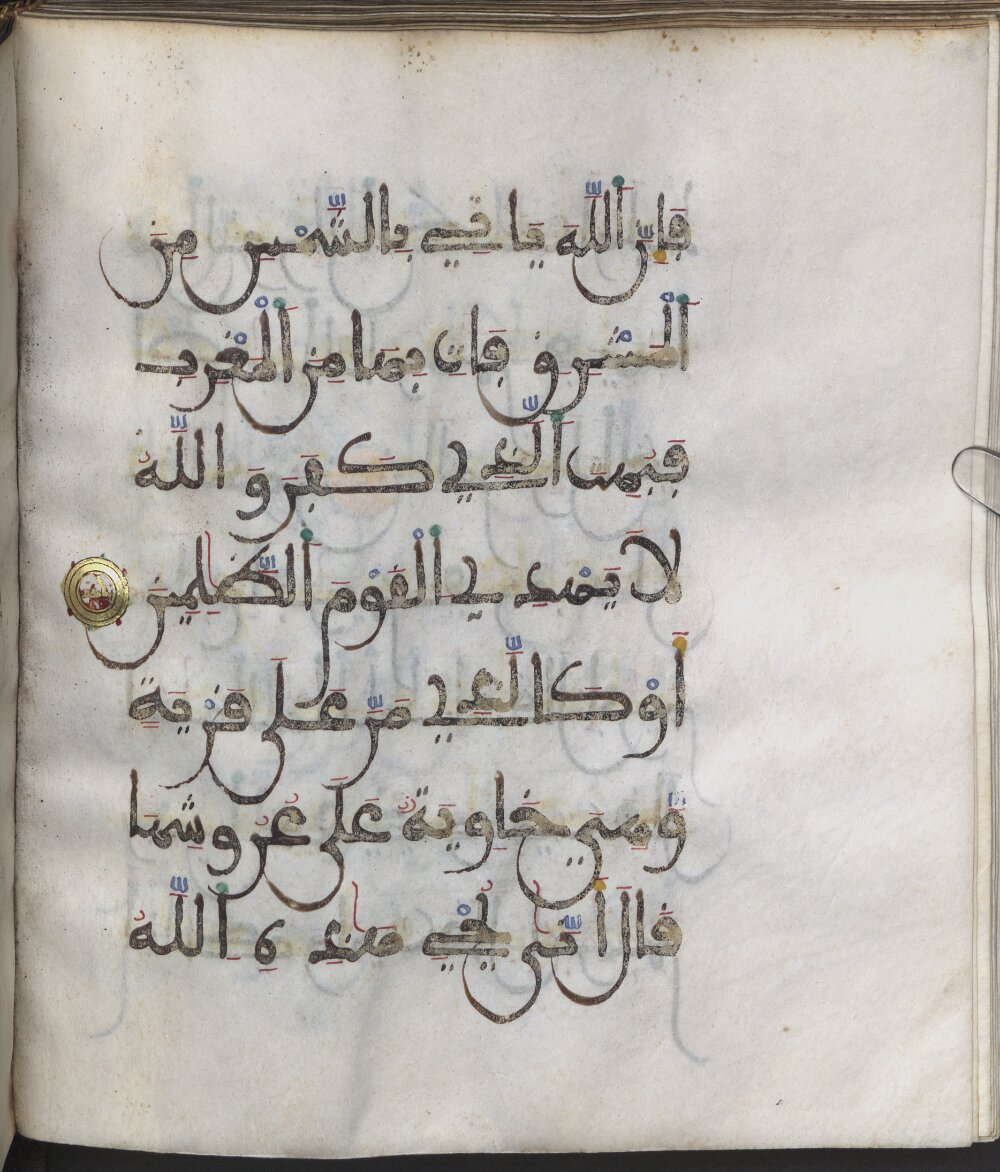 فَإِنَّ اَللَّهَ يَاتِي بِالشَّمْسِ مِنَ
اَلْمَشْرِقِ فَاتِ بِهَا مِنَ اَلْمَغْرِبِ
فَبُهِتَ اَلَّذِي كَفَرَ وَاللَّهُ
لَا يَهْدِي اِلْقَوْمَ اَلظَّٰلِمِينَ
أَوْ كَالَّذِي مَرَّ عَلَى قَرْيَةٍ
وَّهِيَ خَاوِيَةٌ عَلَى عُرُوشِهَا
قَالَ أَنّٰى يُحْيِي هَٰذِهِ اِللَّهُ